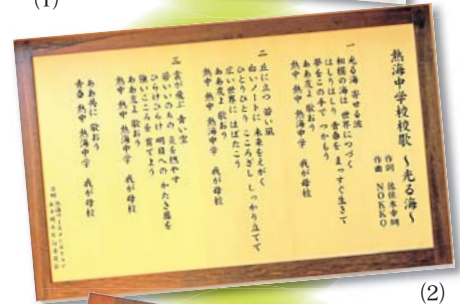 (1)
熱海中学校校歌 〜光る海〜
作詞 佐佐木幸綱
作曲 NOKKO
一 光る海 寄せる波
相模の海は 世界につづく
はしりはしり 青春を まっすぐ生きて
夢をこの手で つかもう
ああ友よ 歌おう
熱中 熱中 熱海中学 我が母校
二 丘に立つ 若い風
白いノートに 未来をえがく
ひとりひとり こころざし しっかり立てて
広い世界に はばたこう
ああ友よ 歌おう
熱中 熱中 熱海中学 我が母校
三 雲が飛ぶ 青い空
若いいのちの 炎を燃やす
ひらけひらけ 明日への かたき扉を
強いこころを 育てよう
ああ友よ 歌おう
熱中 熱中 熱海中学 我が母校
ああ共に 歌おう
青春 熱中 熱海中学 我が母校
(2)